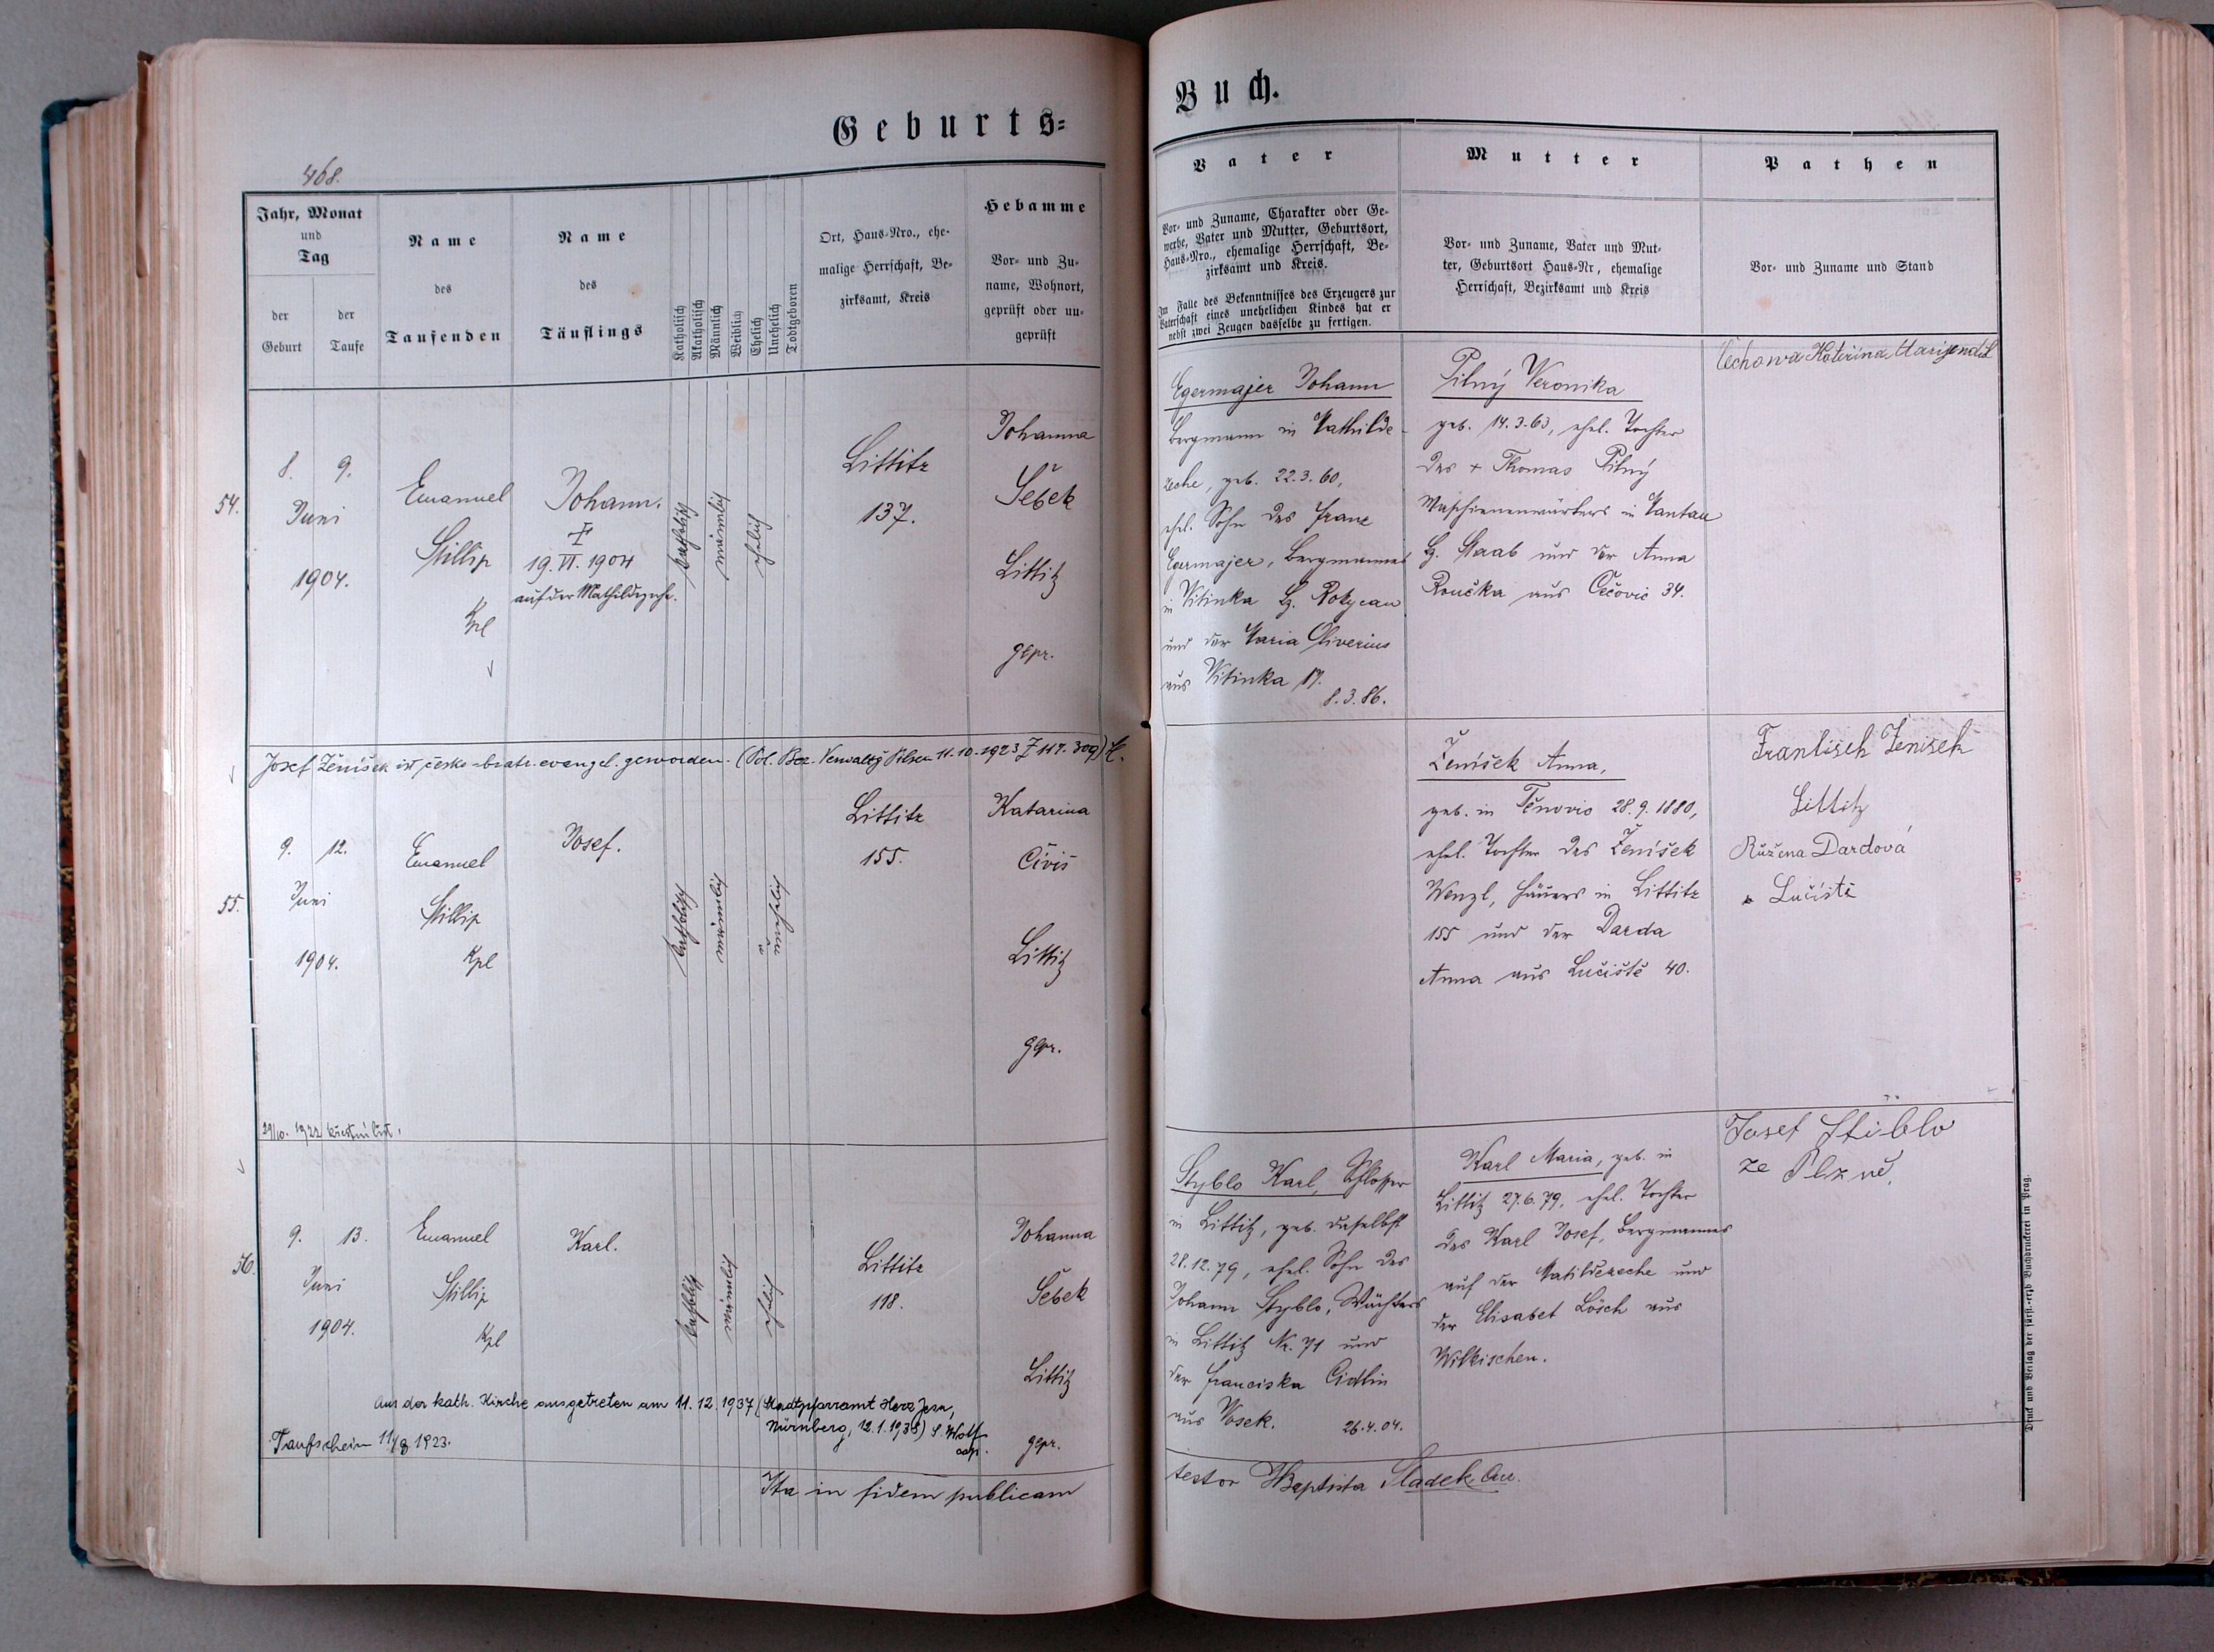 Geburts=
468.
Jahr, Monat
und
Tag
der
Geburt
der
Taufe
Name
des
Taufenden
Name
des
Täuflings
Katholisch
Akatholisch
Männlich
Weiblich
Ehelich
Unehelich
Todtgeboren
Ort, Haus-Nro., ehe-
malige Herrschaft, Be-
zirksamt, Kreis
Hebamme
Vor- und Zu-
name, Wohnort,
geprüft oder un-
geprüft
54.
8. 9.
Juni
1904.
Emanuel
Stillip
Kpl
Johann.
19. VI. 1904
auf der Mathildezeche.
katholisch
männlich
ehelich
Littitz
137.
Johanna
Šebek
Littitz
gepr.
Josef Ženíšek ist česko-bratr. evangel. geworden. (Pol. Bez. Verwaltg Pilsen 11.10.1923 Z 117.309)
55.
9. 12.
Juni
1904.
Emanuel
Stillip
Kpl
Josef.
katholisch
männlich
unehelich
Littitz
155.
Katarina
Čiviš
Littitz
gepr.
29/10. 1922 křestní list.
56.
9. 13.
Juni
1904.
Emanuel
Stillip
Kpl
Karl.
katholisch
männlich
ehelich
Littitz
118.
Johanna
Šebek
Littitz
gepr.
Aus der kath. Kirche ausgetreten am 11.12.1937 (Stadtpfarramt Herz Jesu,
Nürnberg, 12.1.1938) S. Wolf
cap.
Taufschein 11/8 1923.
Ita in fidem publicam
Buch.
Vater
Vor- und Zuname, Charakter oder Ge-
werbe, Vater und Mutter, Geburtsort,
Haus-Nro., ehemalige Herrschaft, Be-
zirksamt und Kreis.
Im Falle des Bekenntnisses des Erzeugers zur
Vaterschaft eines unehelichen Kindes hat er
nebst zwei Zeugen dasselbe zu fertigen.
Mutter
Vor- und Zuname, Vater und Mut-
ter, Geburtsort Haus-Nr, ehemalige
Herrschaft, Bezirksamt und Kreis
Pathen
Vor- und Zuname und Stand
Egermajer Johann
Bergmann in Mathilde-
zeche, geb. 22.3.60,
ehel. Sohn des Franz
Egermajer, Bergmannes
in Vitinka Bz. Rokycan
und der Maria Oliverius
aus Vitinka 17.
8.3.86.
Pilný Veronika
geb. 14.3.63, ehel. Tochter
des + Thomas Pilný
Maschienenwärters in Mantau
Bz. Staab und der Anna
Roučka aus Čečovic 34.
Čechowa Kateřina
Ženíšek Anna,
geb. in Těnovic 28.9.1880,
ehel. Tochter des Ženíšek
Wenzl, Häuers in Littitz
155 und der Darda
Anna aus Lučiště 40.
Frantisek Jenisek
Littitz
Růžena Dardová
z Lučiště
Styblo Karl, Schlosser
in Littitz, geb. daselbst
28.12.79, ehel. Sohn des
Johann Styblo, Wächters
in Littitz Nr. 71 und
der Franciska Cidlin
aus Vosek. 26.4.04.
Karl Maria, geb. in
Littitz 27.6.79, ehel. Tochter
des Karl Josef, Bergmannes
auf der Matildezeche und
der Elisabet Lösch aus
Wilkischen.
Josef Stiblo
ze Plzně,
testor JBaptista Sladek
Druck und Verlag der fürst.-erzb Buchdruckerei in Prag.